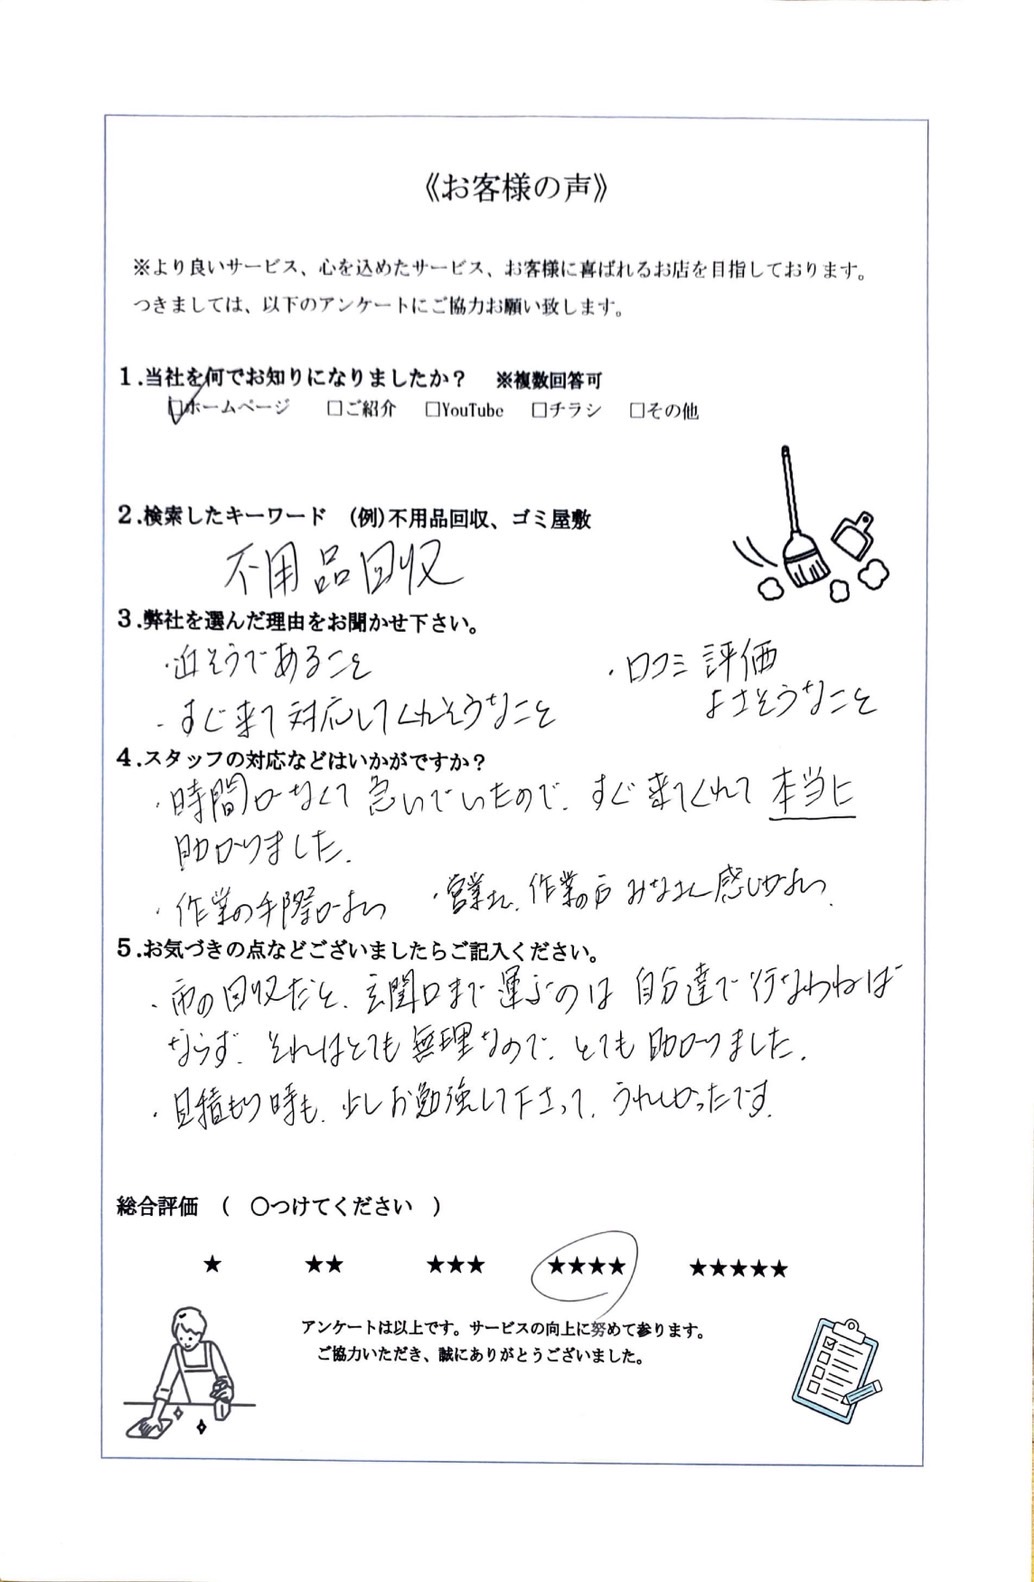 《お客様の声》
※より良いサービス、心を込めたサービス、お客様に喜ばれるお店を目指しております。
つきましては、以下のアンケートにご協力お願い致します。
1.当社を何でお知りになりましたか？ ※複数回答可
□ホームページ □ご紹介 □YouTube □チラシ □その他
2.検索したキーワード (例)不用品回収、ゴミ屋敷
不用品回収
3.弊社を選んだ理由をお聞かせ下さい。
・近そうであること
・すぐ来て対応してくれそうなこと
・口コミ評価
よさそうなこと
4.スタッフの対応などはいかがですか？
・時間がなくて急いでいたので、すぐ来てくれて本当に
助かりました。
・作業の手際がよい
・営業さん、作業の方みなさん感じがよい。
5.お気づきの点などございましたらご記入ください。
・市の回収だと、玄関口まで運ぶのは自分達で行なわねば
ならず、それはとても無理なので、とても助かりました。
・見積もり時も、少しお勉強して下さって、うれしかったです。
総合評価 ( ○つけてください )
★ ★★ ★★★ ★★★★ ★★★★★
アンケートは以上です。サービスの向上に努めて参ります。
ご協力いただき、誠にありがとうございました。